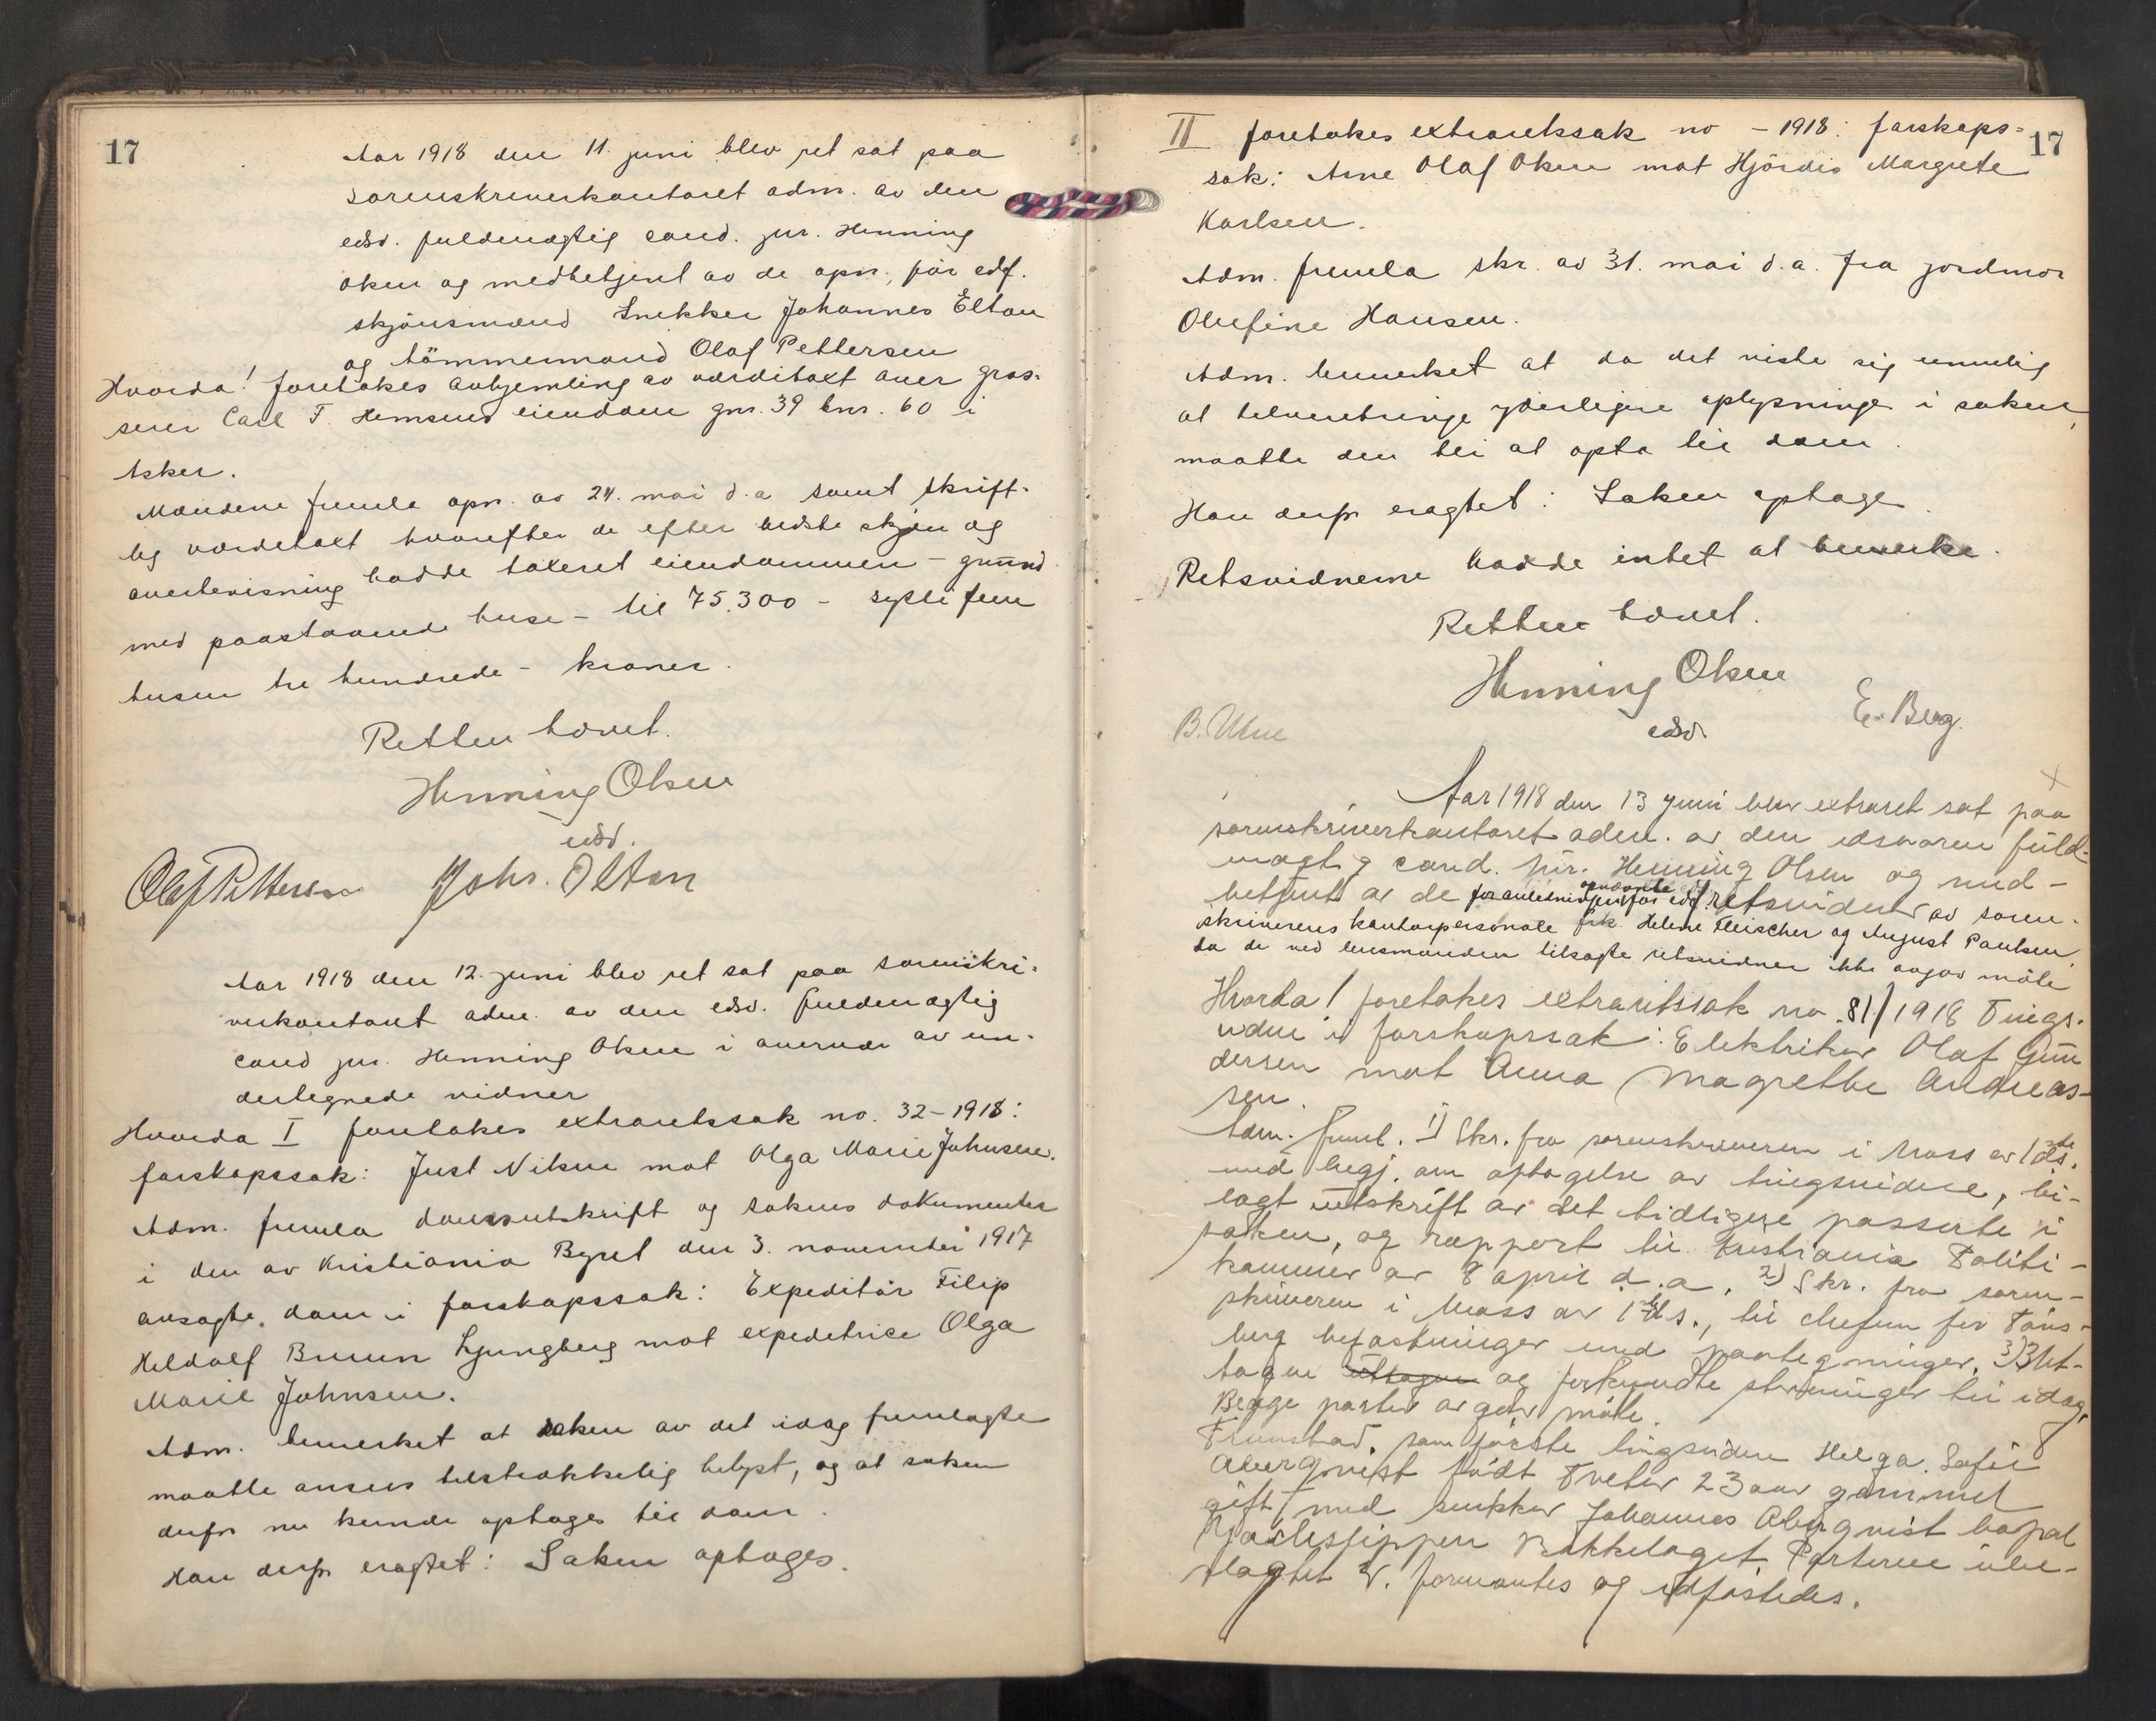 17
Aar 1918 den 11. juni blev ret sat paa
sorenskriverkontoret adm. av den
edsv. fuldmægtig cand. jur. Henning
Olsen og medbetjent av de opn., før edf.
skjønsmænd Snekker Johannes Elton
og tömmermand Olaf Pettersen
Hvorda! foretokes avhjemling av værditaxt over gros-
serer Carl F. Hemsens eiendom gnr. 39 bnr. 60 i
Asker.
Mændene freml. opn. av 24. mai d.a samt skrift-
lig værdetaxt hvorefter de efter bedste skjøn og
overbevisning hadde taxeret eiendommen - grund
med paastaaende huse - til 75.300 - sytti fem
tusen tre hundrede - kroner.
Retten hævet.
Henning Olsen
edsv.
Olaf Pettersen Johs. Elton
Aar 1918 den 12. juni blev ret sat paa sorenskri-
verkontoret adm. av den edsv. fuldmægtig
cand jur. Henning Olsen i overvær av un-
dertegnede vidner
Hvorda I foretokes extraretssak no. 32-1918:
farskapssak: Just Nilsen mot Olga Marie Johnsen.
Adm. fremla domsutskrift og sakens dokumenter
i den av Kristiania Byret den 3. november 1917
avsagte dom i farskapssak: Expeditör Filip
Heldolf Bruun Ljungberg mot expeditrice Olga
Marie Johnsen.
Adm. bemerket at saken av det idag fremlagte
maatte ansees tilstrækkelig belyst, og at saken
derfor nu kunde optages til dom.
Han derfor eragtet: Saken optages.
17
II foretokes extraretssak no - 1918: farskaps-
sak: Arne Olaf Olsen mot Hjördis Margrete
Karlsen.
Adm. fremla skr. av 31. mai d.a. fra jordmor
Olufine Hansen.
Adm. bemerket at da det viste sig umulig
at tilveiebringe yderligere oplysninger i saken,
maatte den bli at opta til dom.
Han derfor eragtet: Saken optages.
Retsvidnerne hadde intet at bemerke.
Retten hævet.
Henning Olsen
edsv.
E. Berg.
B. Utne
Aar 1918 den 13 juni blev extraret sat paa
sorenskriverkontoret adm. av den edsvorne fuld-
mægtig cand. jur. Henning Olsen og med-
betjent av de for anledningen opnævnte før edf. retsvidner av soren-
skriverens kontorpersonale frk. Helene Fleischer og August Paulsen,
da de ved lensmanden tilsagte retsvidner ikke avgav møte
Hvorda! foretokes extraretssak no. 81/1918 Tings-
vidne i farskapssak: Elektriker Olaf Gun
dersen mot Anna Magrethe Andreas-
sen.
Adm. freml. 1) Skr. fra sorenskriveren i Moss av 1ste ds.
med begj. om optagelse av tingsvidne, bi-
lagt utskrift av det tidligere passerte i
saken, og rapport til Kristiania Politi-
kammer av 8 april d.a. 2) Skr. fra soren-
skriveren i Moss av 1ste ds., til chefen for Töns-
berg befæstninger med paategninger. 3) 3 Ut-
tagne uttagne og forkyndte stevninger til idag.
Begge parter avgav møte.
Fremstod som første tingsvidne Helga Sofie
Åberqvist født Tveter 23 aar gammel
gift med snekker Johannes Åberqvist bopæl
Bækkelaget. Parterne ube-
slægtet. V. formantes og edfæstedes.